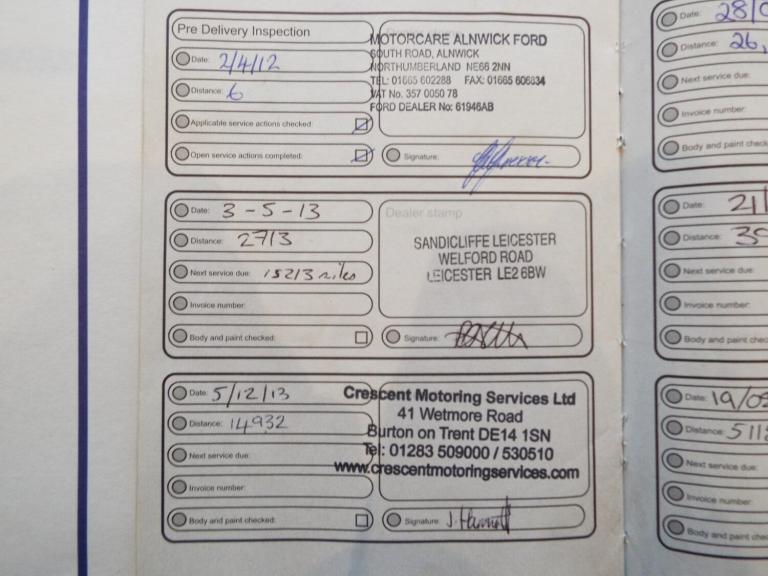 Pre Delivery Inspection
Date: 2/4/12
Distance: 6
Applicable service actions checked:
Open service actions completed:
MOTORCARE ALNWICK FORD
SOUTH ROAD, ALNWICK
NORTHUMBERLAND NE66 2NN
TEL: 01665 602288 FAX: 01665 606834
VAT No. 357 0050 78
FORD DEALER No: 61946AB
Signature:
Date: 3-5-13
Distance: 2713
Next service due: 15213 miles
Invoice number:
Body and paint checked:
Dealer stamp
SANDICLIFFE LEICESTER
WELFORD ROAD
LEICESTER LE2 6BW
Signature:
Date: 5/12/13
Distance: 14932
Next service due:
Invoice number:
Body and paint checked:
Crescent Motoring Services Ltd
41 Wetmore Road
Burton on Trent DE14 1SN
Tel: 01283 509000 / 530510
www.crescentmotoringservices.com
Signature:
Date: 28/0
Distance: 26,
Next service due:
Invoice number:
Body and paint check
Date: 21/
Distance: 39
Next service due:
Invoice number:
Body and paint chec
Date: 19/09
Distance: 511
Next service due:
Invoice number:
Body and paint chec